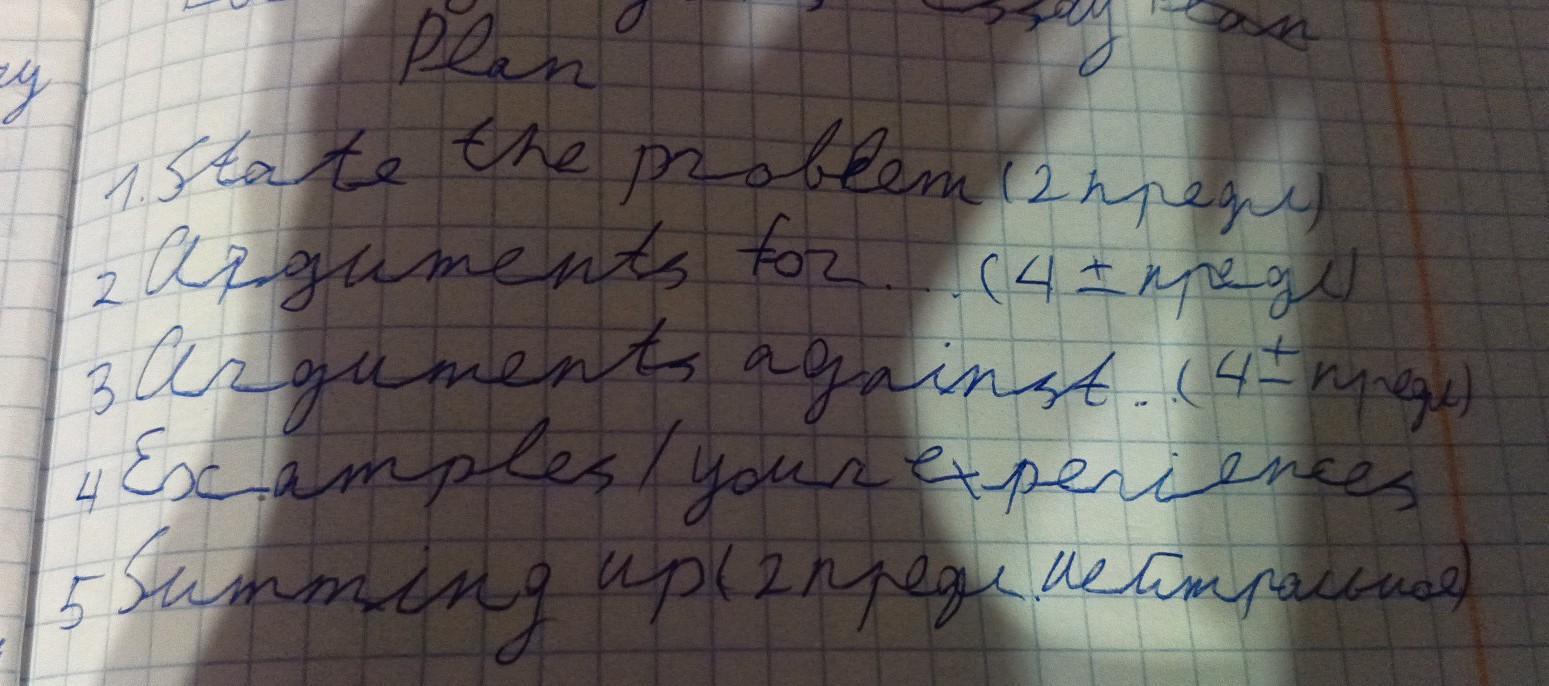 Essay Plan
Plan
1. State the problem (2 предл)
2 Arguments for.... (4 ± предл)
3 Arguments against... (4 ± предл)
4 Examples / your experiences
5 Summing up (2 предл. нейтральное)